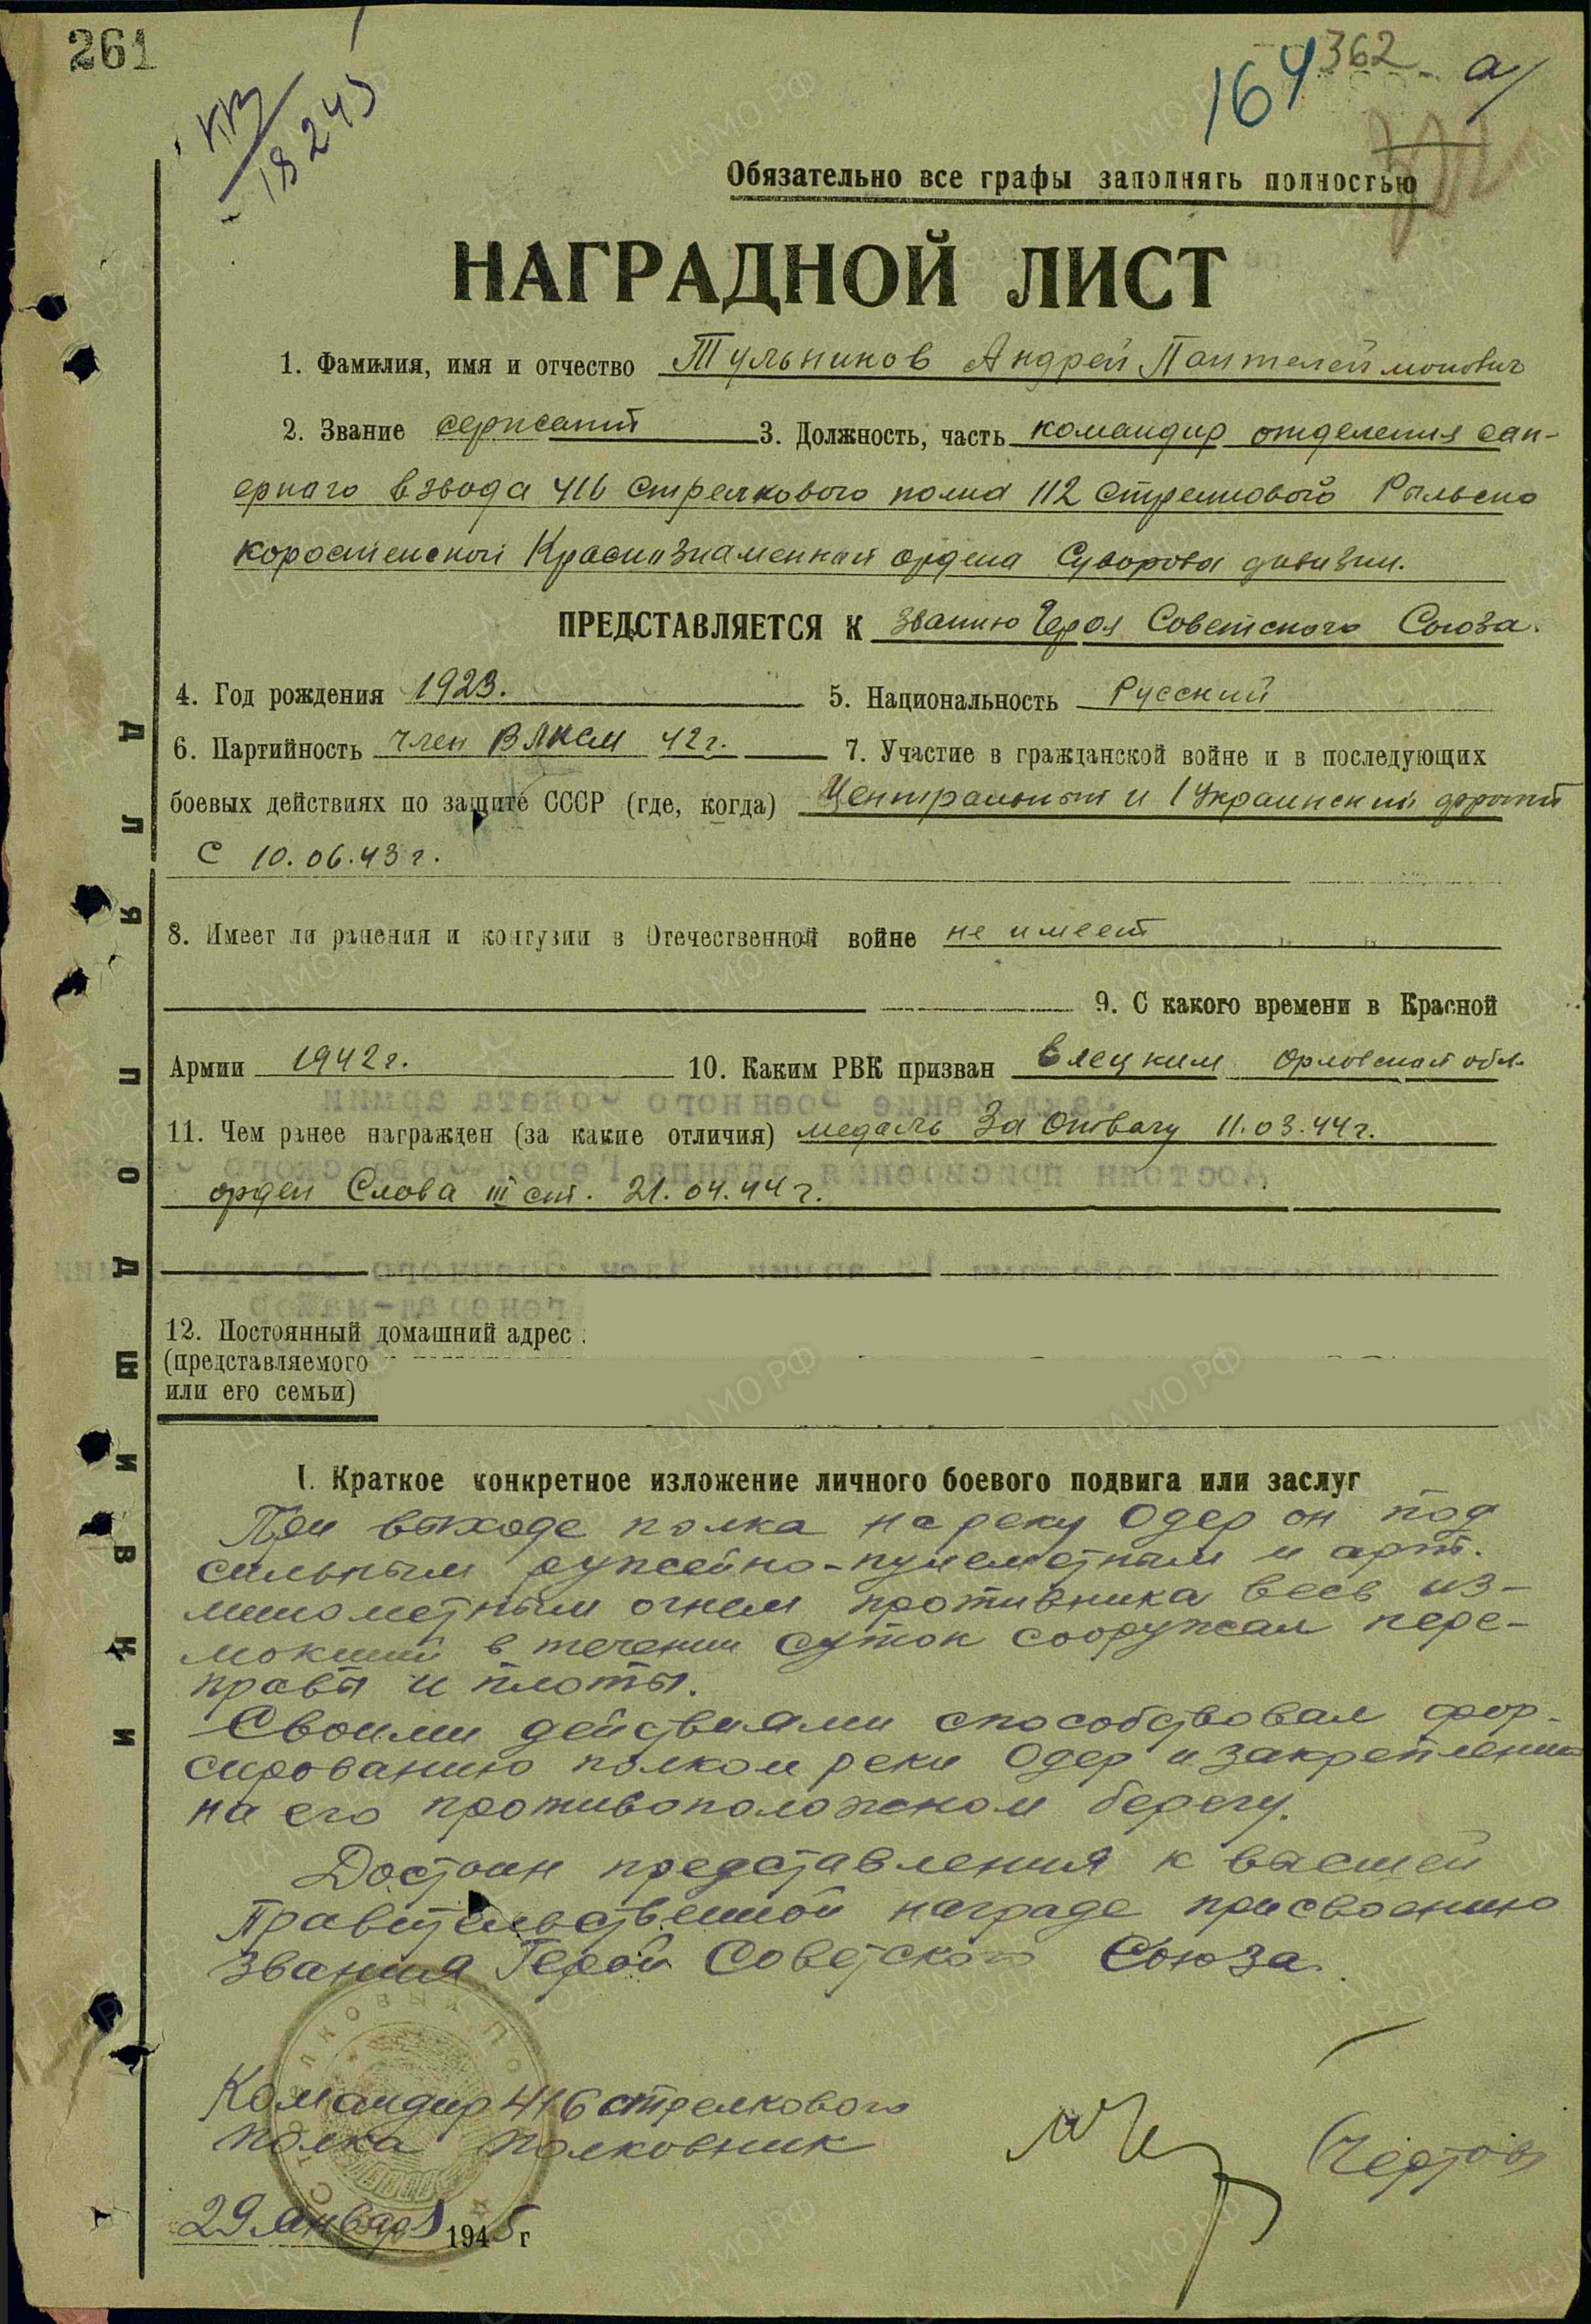 261
18245
164
362
а/
Обязательно все графы заполнять полностью
НАГРАДНОЙ ЛИСТ
1. Фамилия, имя и отчество Тульников Андрей Пантелеймонович
2. Звание сержант 3. Должность, часть командир отделения сап-
ерного взвода 416 стрелкового полка 112 стрелковой Рыльско
коростенской Краснознаменной ордена Суворова дивизии.
ПРЕДСТАВЛЯЕТСЯ К званию Героя Советского Союза.
4. Год рождения 1923. 5. Национальность Русский
6. Партийность член ВЛКСМ 42 г. 7. Участие в гражданской войне и в последующих
боевых действиях по защите СССР (где, когда) Центральный и 1 Украинский фронт
С 10.06.43 г.
8. Имеет ли ранения и контузии в Отечественной войне не имеет
9. С какого времени в Красной
Армии 1942 г. 10. Каким РВК призван Елецким Орловская обл.
11. Чем ранее награжден (за какие отличия) медаль За Отвагу 11.03.44 г.
орден Слова III ст. 21.04.44 г.
12. Постоянный домашний адрес
(представляемого
или его семьи)
I. Краткое конкретное изложение личного боевого подвига или заслуг
При выходе полка на реку Одер он под
сильным ружейно-пулеметным и арт.
минометным огнем противника весь из-
мокший в течении суток сооружал пере-
правы и плоты.
Своими действиями способствовал фор-
сированию полком реки Одер и закреплению
на его противоположном берегу.
Достоин представления к высшей
Правительственной награде присвоению
звания Герой Советского Союза.
Командир 416 стрелкового
полка полковник (Чертов)
29 января 1945 г
ДЛЯ ПОДШИВКИ